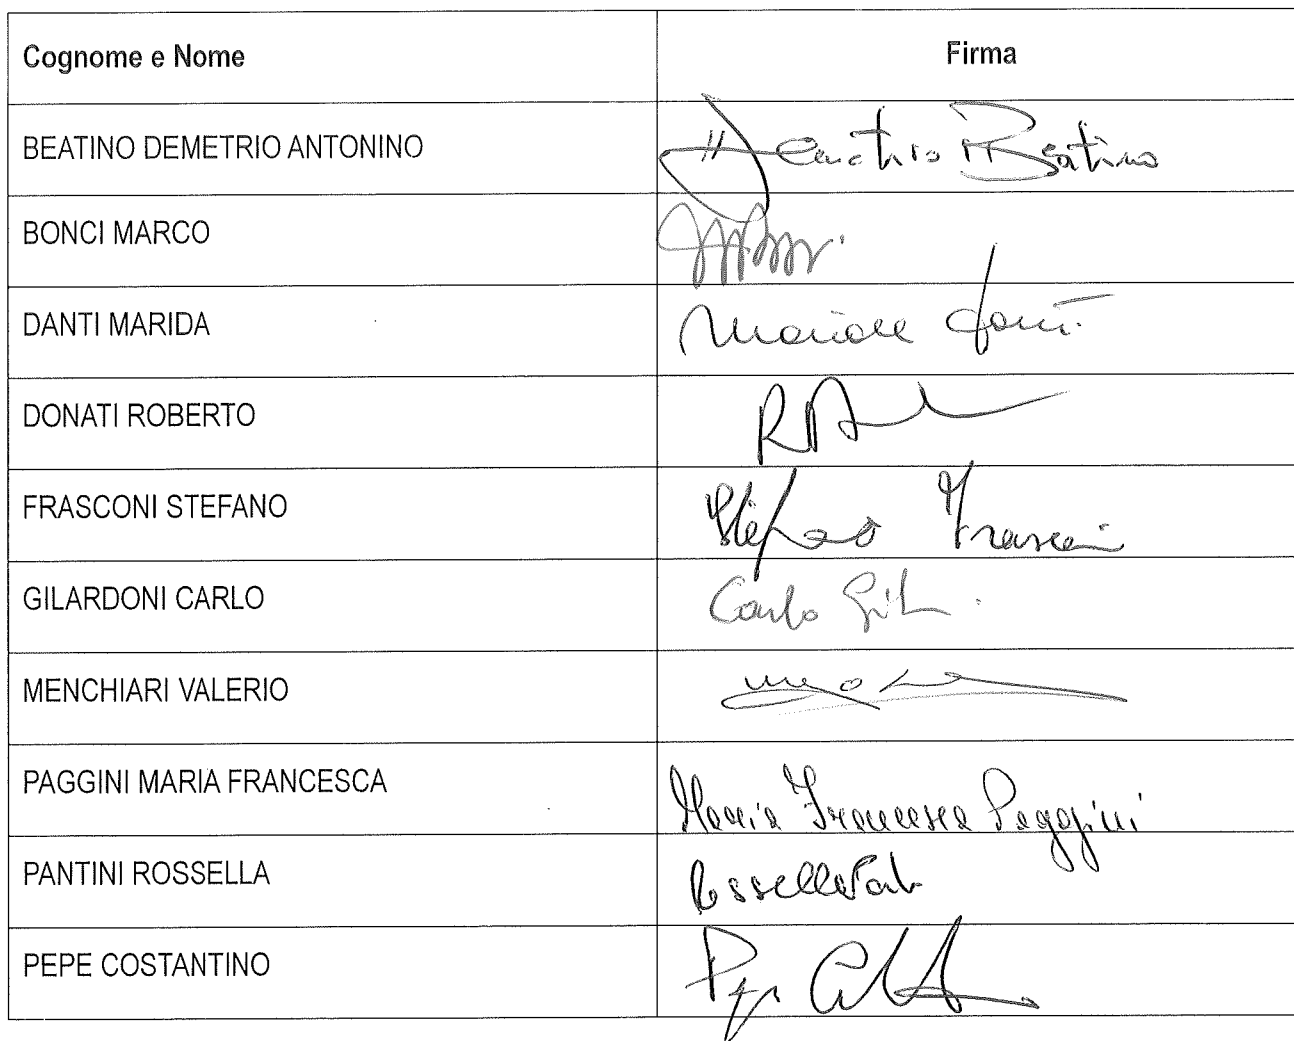 Cognome e Nome Firma
BEATINO DEMETRIO ANTONINO Demetrio Beatino
BONCI MARCO
DANTI MARIDA
DONATI ROBERTO
FRASCONI STEFANO Stefano Frasconi
GILARDONI CARLO Carlo
MENCHIARI VALERIO
PAGGINI MARIA FRANCESCA Maria Francesca Paggini
PANTINI ROSSELLA
PEPE COSTANTINO